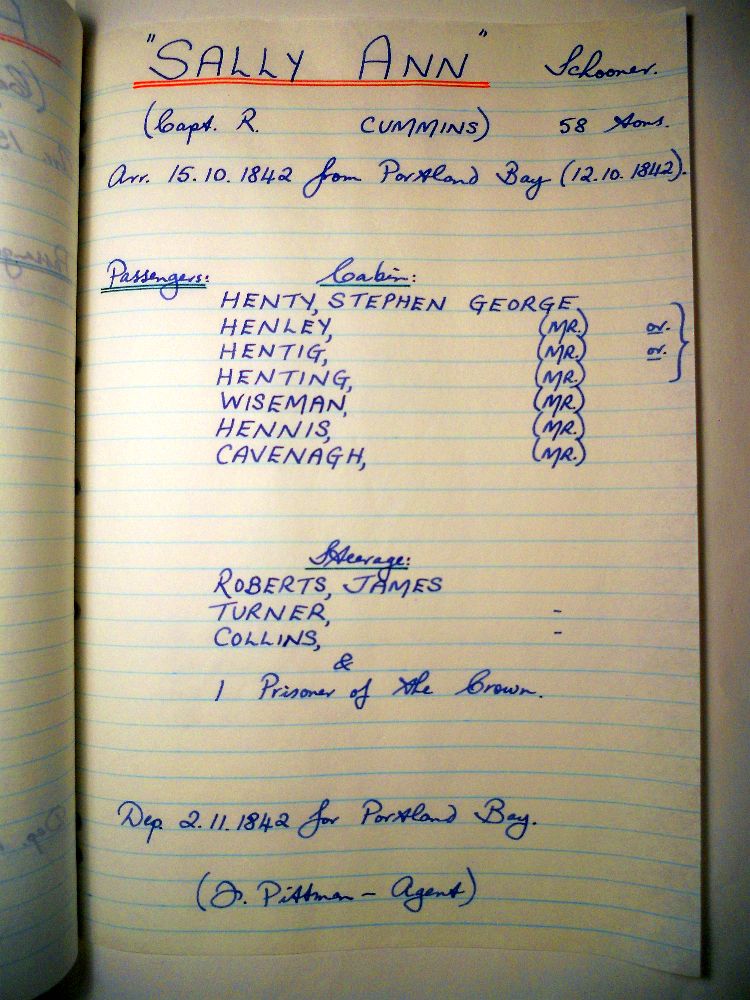 "SALLY ANN" Schooner.
(Capt. R. CUMMINS) 58 tons.
Arr. 15.10.1842 from Portland Bay (12.10.1842).
Passengers: Cabin:
HENTY, STEPHEN GEORGE
HENLEY, (MR.) or.
HENTIG, (MR.) or.
HENTING, (MR.)
WISEMAN, (MR.)
HENNIS, (MR.)
CAVENAGH, (MR.)
Steerage:
ROBERTS, JAMES
TURNER, -
COLLINS, -
&
1 Prisoner of the Crown.
Dep. 2.11.1842 for Portland Bay.
(J. Pittman - Agent)